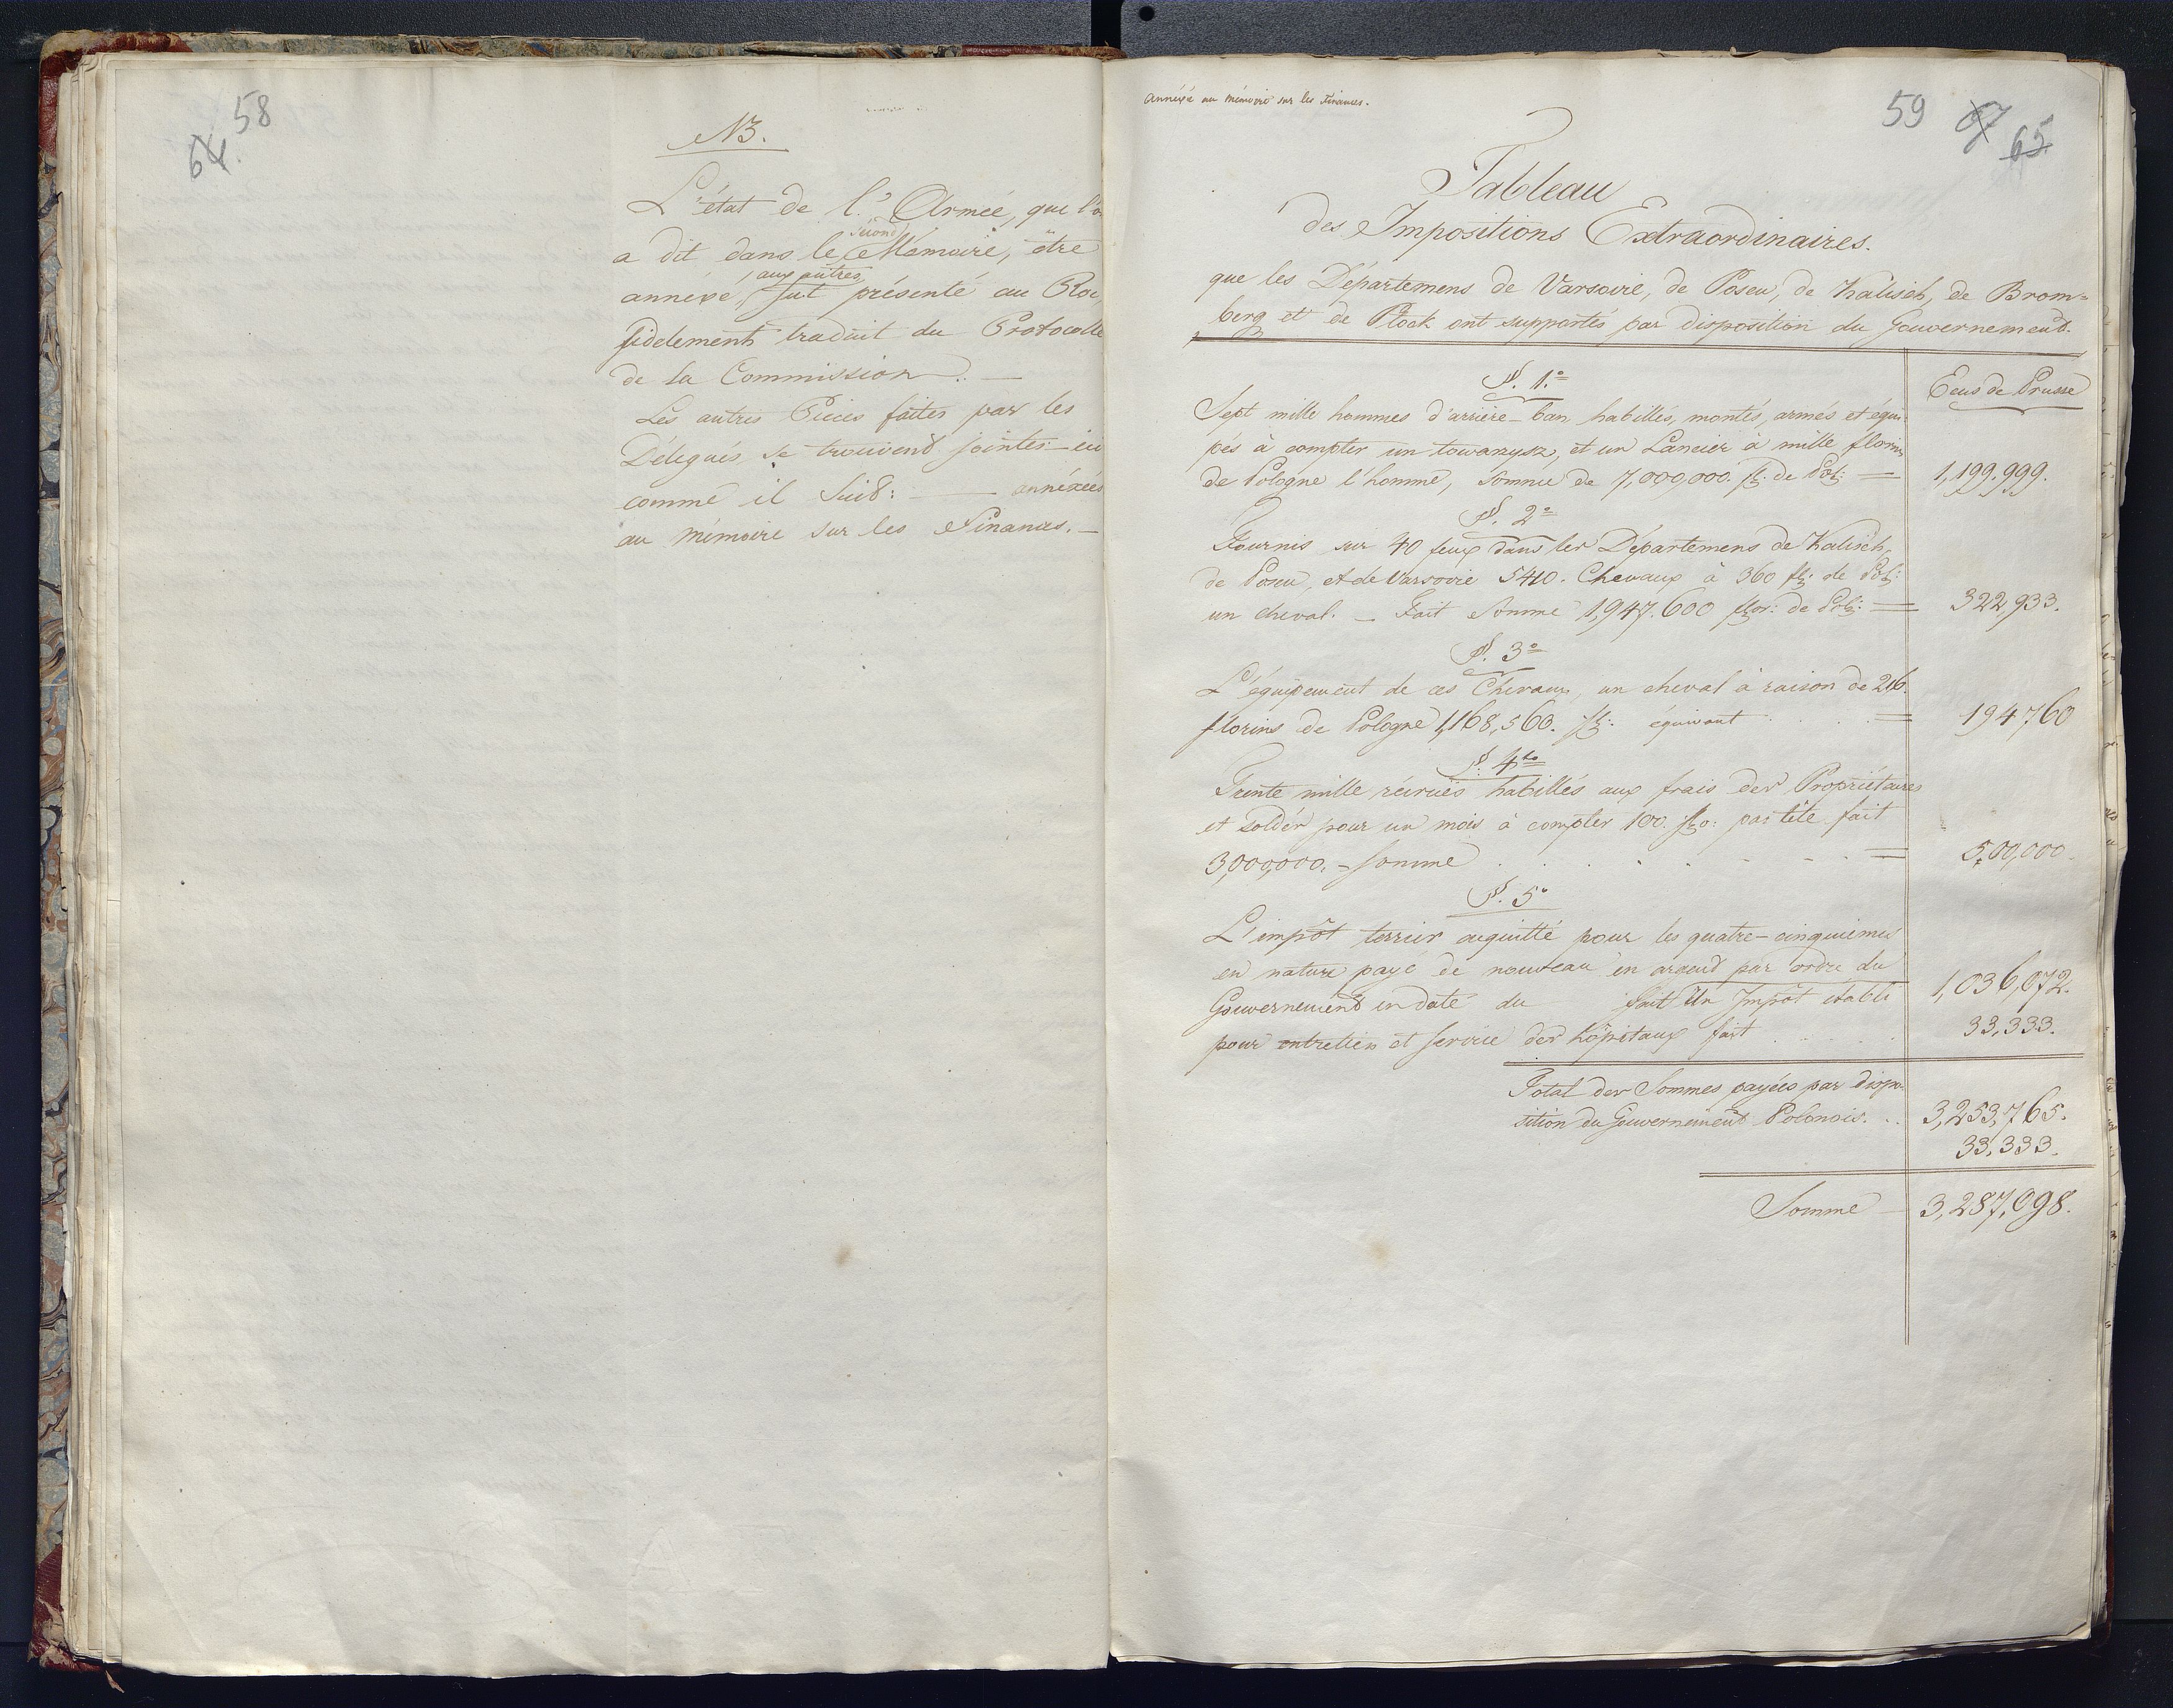 58
64.
NB.
L'état de l'Armée, que l'o
a dit dans le second Mémoire, être
annexé aux autres, fut présenté au Roi,
fidelement traduit du Protocolle
de la Commission. —
Les autres Pièces faites par les
Délégués se trouvent jointes ici
comme il suit: — annéxées
au mémoire sur les Finances. —
annéxé au mémoire sur les Finances.
59 67 65
Tableau
des Impositions Extraordinaires.
que les Départemens de Varsovie, de Posen, de Kalisch, de Brom=
berg et de Plock ont supportés par disposition du Gouvernement.
Ecus de Prusse
§. 1.º
Sept mille hommes d'arrière-ban habillés, montés, armés et équi-
pés à compter un towarzysz, et un Lancier à mille florins
de Pologne l'homme, Somme de 7,000,000. fl: de Pol: = 1,199.999.
§. 2º
Fournis sur 40 feux dans les Départemens de Kalisch,
de Posen, et de Varsovie 5410. Chevaux à 360 fl: de Pol:
un cheval. — Fait Somme 1,947.600 flor: de Pol: = 322,933.
§. 3º
L'équipement de ces Chevaux, un cheval à raison de 216.
florins de Pologne 1,168,560. fl: équivaut . . . = 194760
§. 4to
Trente mille récrues habillés aux frais des Propriétaires
et soldés pour un mois à compter 100. flo: par tête fait
3,000,000. = somme . . . . . . = 5,00,000.
§. 5º
L'impôt terrier acquitté pour les quatre-cinquièmes
en nature payé de nouveau en argent par ordre du
Gouvernement en date du fait 1,036,072.
Un Impôt établi
pour entretien et service des hôpitaux fait . . . . . 33,333.
Total des Sommes payées par dispo-
sition du Gouvernement Polonois. . . 3,253,765.
33,333.
Somme 3,287,098.